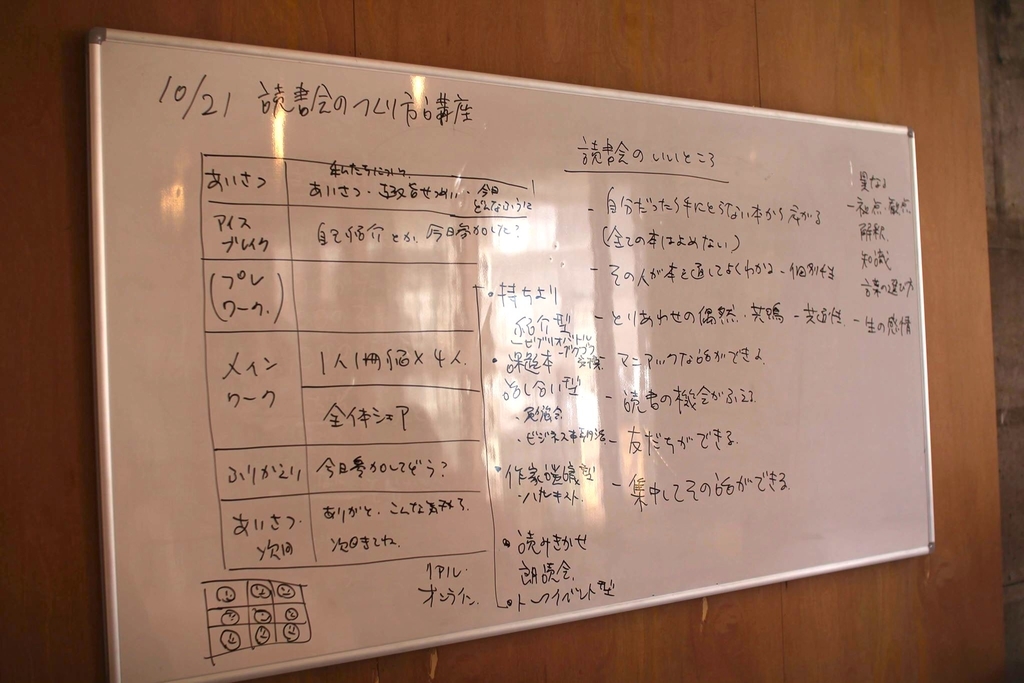 10/21 読書会のつくり方講座
あいさつ
私たちについて
あいさつ・趣旨せつめい・今日
どんなふうに
アイス
ブレイク
自己紹介とか、今日参加した?
(プレ
ワーク)
メイン
ワーク
1人1冊紹介×4人
全体シェア
ふりかえり
今日参加してどう?
あいさつ
次回
ありがと、こんな
次回きてね
リアル・
オンライン
・持ちより
紹介型
- ビブリオバトル
・課題本
話し合い型
・勉強会
・ビジネス本
・作家
- ハルキスト
・読みきかせ
朗読会
・トークイベント型
読書会のいいところ
- 自分だったら手にとらない本から広がる
(全ての本はよめない)
- その人が本を通してよくわかる -
- とりあわせの偶然・共鳴 - 共通性
マニアックな話ができる
- 読書の機会がふえる
- 友だちができる
- 集中してその話ができる
異なる
- 視点・観点
解釈
知識
言葉の選び方
- 生の感情